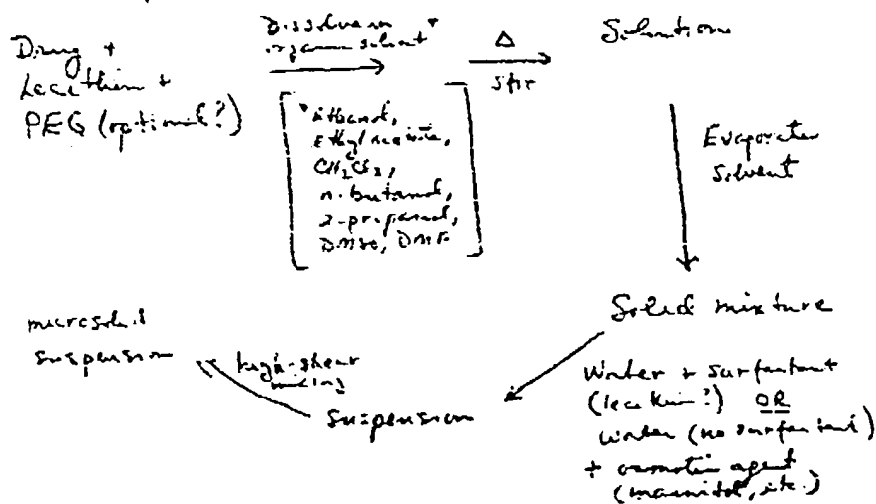 Drug +
Lecithin +
PEG (optional?)
Dissolve in
organic solvent *
* ethanol,
Ethyl acetate,
CH₂Cl₂,
n-butanol,
2-propanol,
DMSO, DMF
Δ
stir
Solution
Evaporate
Solvent
Solid mixture
Water + surfactant
(lecithin?) OR
water (no surfactant)
+ osmotic agent
(mannitol, etc.)
suspension
high-shear
mixing
suspension